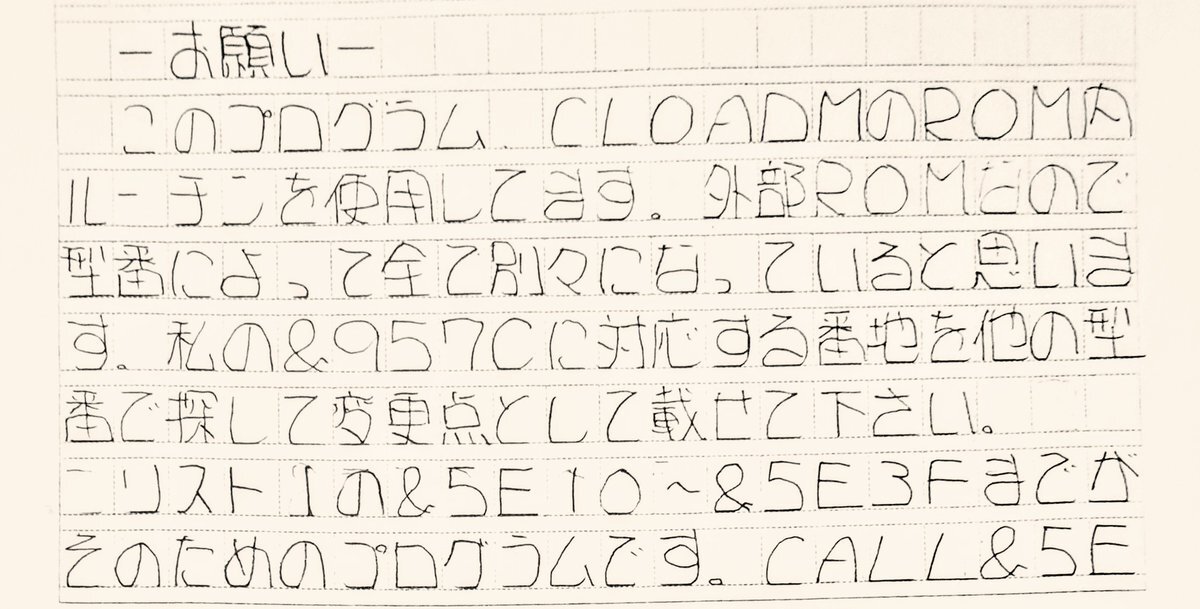 ーお願いー
このプログラム、CLOADMのROM内
ルーチンを使用してます。外部ROMなので
型番によって全て別々になっていると思いま
す。私の&957Cに対応する番地を他の型
番で探して変更点として載せて下さい。
リスト1の&5E10~&5E3Fまでが
そのためのプログラムです。CALL&5E